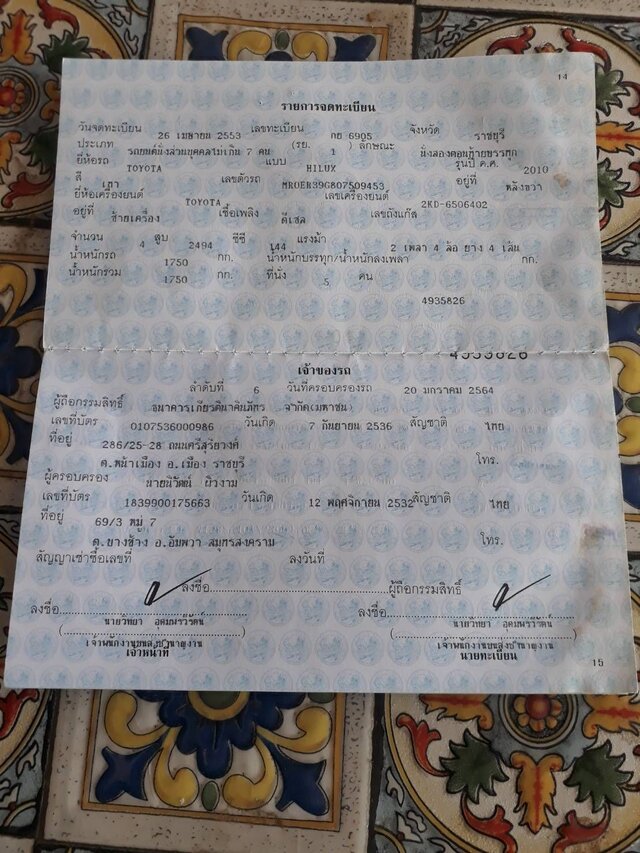 14
รายการจดทะเบียน
วันจดทะเบียน 26 เมษายน 2553 เลขทะเบียน กย 6905 จังหวัด ราชบุรี
ประเภท รถยนต์นั่งส่วนบุคคลไม่เกิน 7 คน (รย. 1 ) ลักษณะ นั่งสองตอนท้ายบรรทุก
ยี่ห้อรถ TOYOTA แบบ HILUX รุ่นปี ค.ศ. 2010
สี เทา เลขตัวรถ MR0ER39G807509453 อยู่ที่ หลังขวา
ยี่ห้อเครื่องยนต์ TOYOTA เลขเครื่องยนต์ 2KD-6506402
อยู่ที่ ซ้ายเครื่อง เชื้อเพลิง ดีเซล เลขถังแก๊ส
จำนวน 4 สูบ 2494 ซีซี 144 แรงม้า 2 เพลา 4 ล้อ ยาง 4 เส้น
น้ำหนักรถ 1750 กก. น้ำหนักบรรทุก/น้ำหนักลงเพลา กก.
น้ำหนักรวม 1750 กก. ที่นั่ง 5 คน
4935826
4935826
เจ้าของรถ
ลำดับที่ 6 วันที่ครอบครองรถ 20 มกราคม 2564
ผู้ถือกรรมสิทธิ์ ธนาคารเกียรตินาคินภัทร จำกัด(มหาชน)
เลขที่บัตร 0107536000986 วันเกิด 7 กันยายน 2536 สัญชาติ ไทย
ที่อยู่ 286/25-28 ถนนศรีสุริยวงศ์
ต.หน้าเมือง อ.เมือง ราชบุรี โทร.
ผู้ครอบครอง นายนิวัฒน์ ผิวงาม
เลขที่บัตร 1839900175663 วันเกิด 12 พฤศจิกายน 2532 สัญชาติ ไทย
ที่อยู่ 69/3 หมู่ 7
ต.บางช้าง อ.อัมพวา สมุทรสงคราม โทร.
สัญญาเช่าซื้อเลขที่ ลงวันที่
ลงชื่อ ผู้ถือกรรมสิทธิ์
ลงชื่อ ลงชื่อ
นายวิทยา อุดมพรวิรัตน์ นายวิทยา อุดมพรวิรัตน์
( ) ( )
เจ้าพนักงานขนส่งชำนาญงาน เจ้าพนักงานขนส่งชำนาญงาน
เจ้าหน้าที่ นายทะเบียน
15